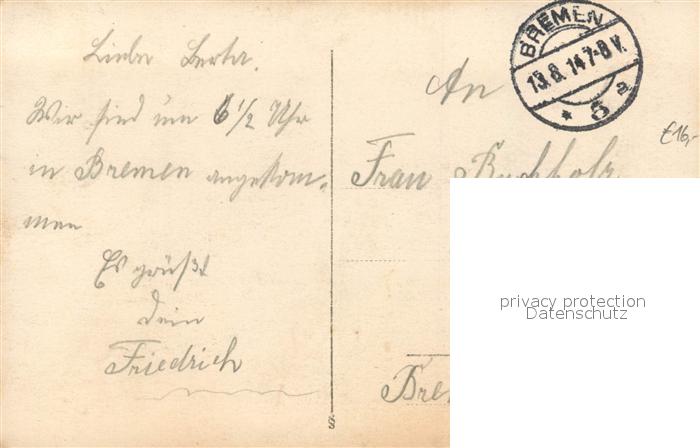 Liebe Berta.
Wir sind um 6 1/2 Uhr
in Bremen angekom-
men
Es grüßt
dein
Friedrich
BREMEN
13.8.14 7-8 V.
* 5 a
An
Frau Buchholz
€16,-
privacy protection
Datenschutz
§